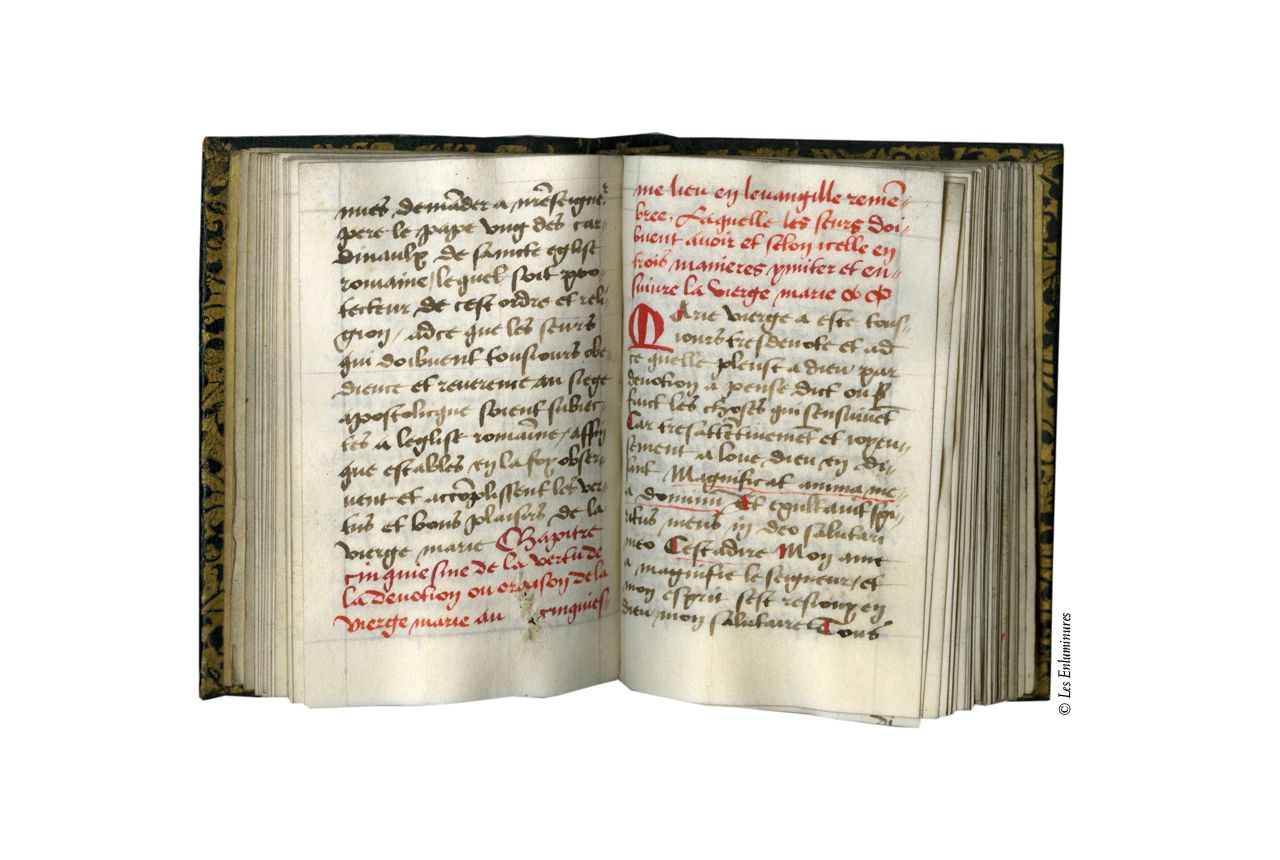 nues demāder a nr̄e seigner
pere le pape vng des car-
dinaulx de saincte eglise
romaine, lequel soit pro-
tecteur de cest ordre et reli-
gion, adce que les seurs
qui doibuent tousiours obe-
dience et reuerence au siege
apostolicque soient subiec-
tes a leglise romaine, affin
que estables en la foy obser-
uent et accōplissent les ver-
tus et bons plaisirs de la
vierge marie Chapitre
cinquiesme de la vertu de
la deuotion ou oraison de la
vierge marie au cinquies-
me lieu en leuangille remē-
bree, Laquelle les seurs doi-
buent auoir et selon icelle en
trois manieres ymiter et en-
suiure la vierge marie
Marie vierge a este tous-
iours tresdeuote et ad
ce quelle pleust a dieu par
deuotion a pense dict ou
faict les choses qui sensuiuēt
Car tresattentiuement et
sement a loue dieu en di-
sant Magnificat anima me-
a dominū Et exultauit spi-
ritus meus in deo salutari
meo Cestadire Mon ame
a magnifie le seigneur, et
mon esprit sest resiouy en
dieu mon salutaire Tous
© Les Enluminures